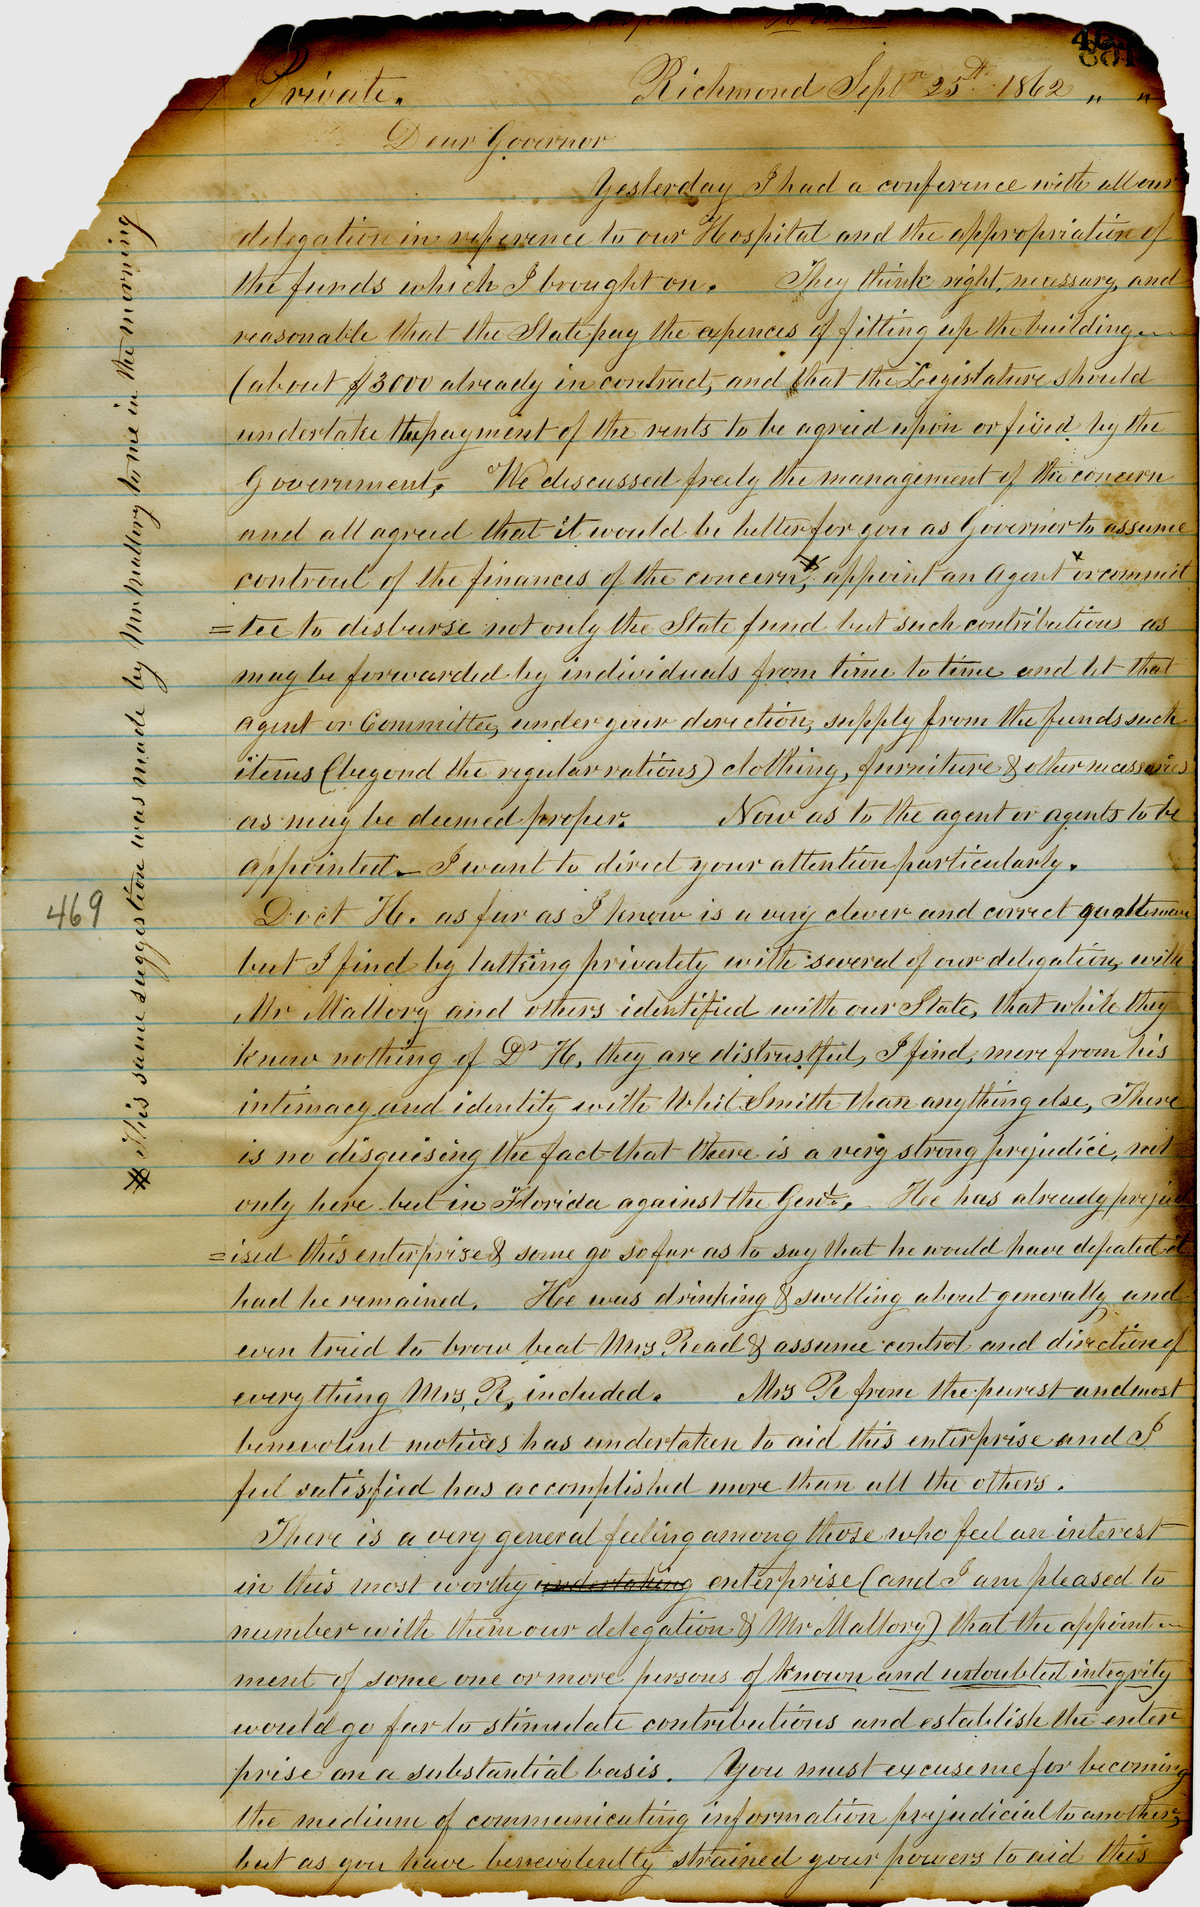 Private. Richmond Sept 25th 1862 " "
Dear Governor
Yesterday I had a conference with all our
delegation in reference to our Hospital and the appropriation of
the funds which I brought on. They think right, necessary, and
reasonable that the State pay the expences of fitting up the building
(about $3000 already in contract, and that the Legislature should
undertake the payment of the rents to be agreed upon or fixed by the
Government. We discussed freely the management of the concern
and all agreed that it would be better for you as Governor to assume
controul of the finances of the concern, appoint an Agent x or commit
=tee to disburse not only the State fund but such contributions as
may be forwarded by individuals from time to time and let that
agent or Committee, under your direction, supply from the funds such
items (beyond the regular rations) clothing, furniture & other necessaries
as may be deemed proper. Now as to the agent or agents to be
appointed – I want to direct your attention particularly.
Doct H. as far as I know is a very clever and correct gentleman
but I find by talking privately with several of our delegation, with
Mr Mallory and others identified with our State, that while they
know nothing of Dr H, they are distrustful, I find, more from his
intimacy and identity with Whit Smith than anything else, There
is no disguising the fact that there is a very strong prejudice, not
only here but in Florida against the Genl. He has already prejud
=ised this enterprise & some go so far as to say that he would have defeated it
had he remained. He was drinking & swelling about generally and
even tried to brow beat Mrs Read & assume control and direction of
everything Mrs, R, included. Mrs R from the purest and most
benevolent motives has undertaken to aid this enterprise and I
feel satisfied has accomplished more than all the others.
There is a very general feeling among those who feel an interest
in this most worthy undertaking enterprise (and I am pleased to
number with them our delegation & Mr Mallory) that the appoint
ment of some one or more persons of known and undoubted integrity
would go far to stimulate contributions and establish the enter
prise on a substantial basis. You must excuse me for becoming
the medium of communicating information prejudicial to another,
but as you have benevolently strained your powers to aid this
* This same suggestion was made by Mr Mallory to me in the morning
469